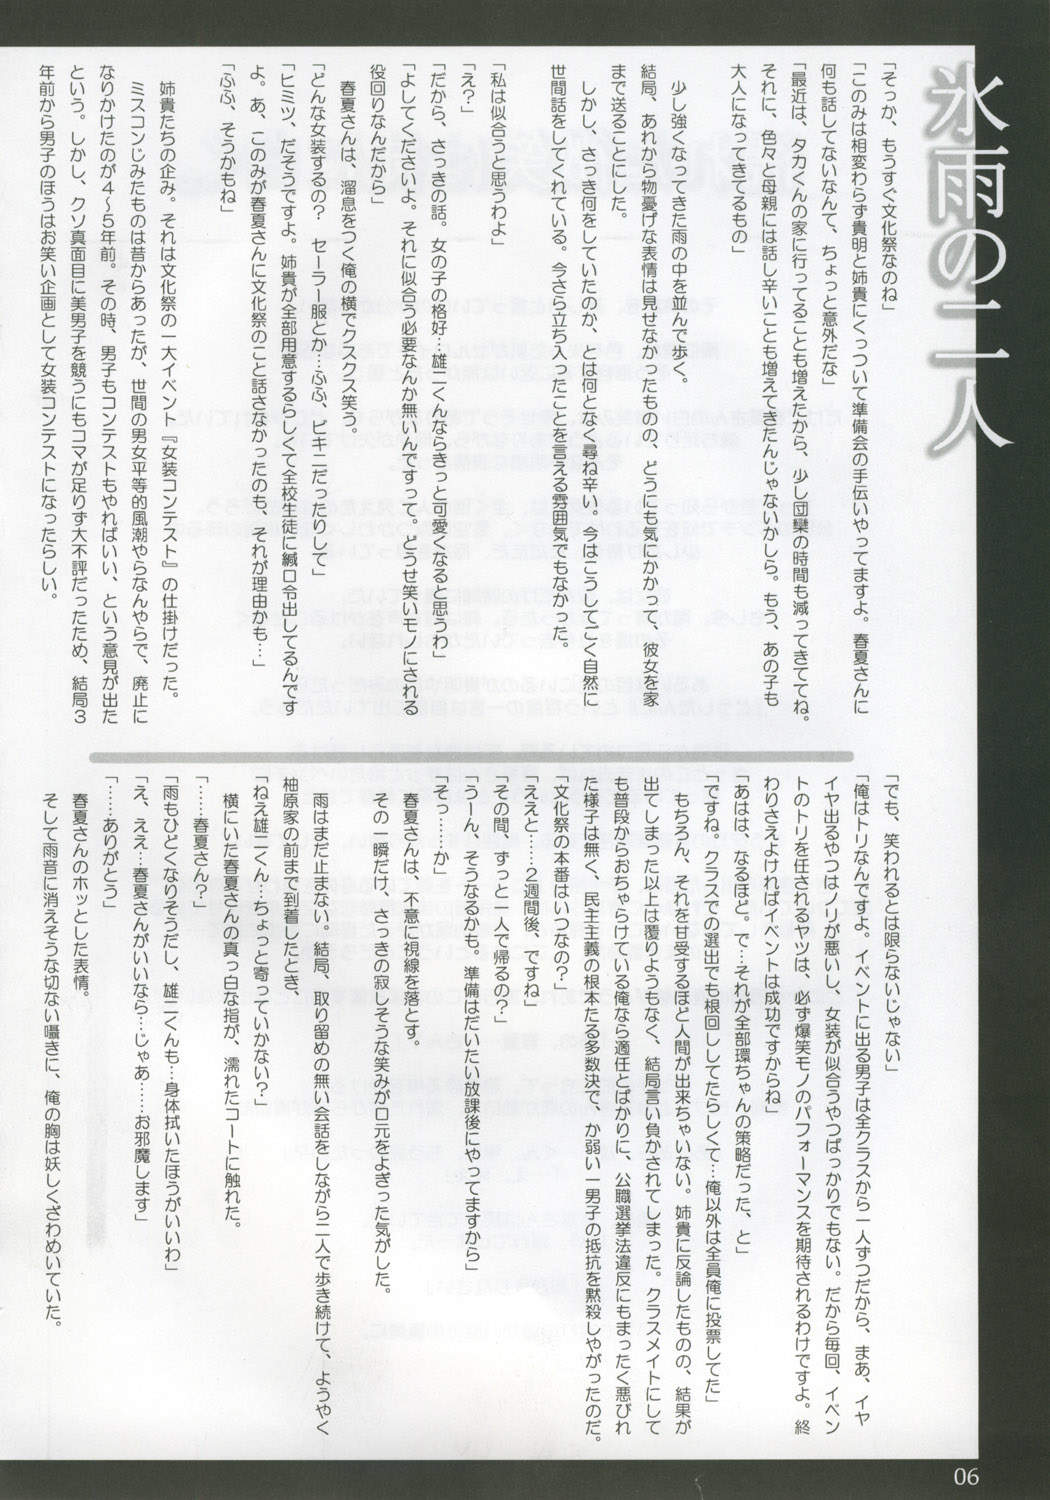 氷雨の二人
「そっか、もうすぐ文化祭なのね」
「このみは相変わらず貴明と姉貴にくっついて準備会の手伝いやってますよ。春夏さんに
何も話してないなんて、ちょっと意外だな」
「最近は、タカくんの家に行ってることも増えたから、少し団欒の時間も減ってきててね。
それに、色々と母親には話し辛いことも増えてきたんじゃないかしら。もう、あの子も
大人になってきてるもの」
少し強くなってきた雨の中を並んで歩く。
結局、あれから物憂げな表情は見せなかったものの、どうにも気にかかって、彼女を家
まで送ることにした。
しかし、さっき何をしていたのか、とは何となく尋ね辛い。今はこうしてごく自然に
世間話をしてくれている。今さら立ち入ったことを言える雰囲気でもなかった。
「私は似合うと思うわよ」
「え？」
「だから、さっきの話。女の子の格好…雄二くんならきっと可愛くなると思うわ」
「よしてくださいよ。それに似合う必要なんか無いんですって。どうせ笑いモノにされる
役回りなんだから」
春夏さんは、溜息をつく俺の横でクスクス笑う。
「どんな女装するの？　セーラー服とか…ふふ、ビキニだったりして」
「ヒミツ、だそうですよ。姉貴が全部用意するらしくて全校生徒に緘口令出してるんです
よ。あ、このみが春夏さんに文化祭のこと話さなかったのも、それが理由かも…」
「ふふ、そうかもね」
姉貴たちの企み。それは文化祭の一大イベント『女装コンテスト』の仕掛けだった。
ミスコンじみたものは昔からあったが、世間の男女平等的風潮やらなんやらで、廃止に
なりかけたのが４～５年前。その時、男子もコンテストもやればいい、という意見が出た
という。しかし、クソ真面目に美男子を競うにもコマが足りず大不評だったため、結局３
年前から男子のほうはお笑い企画として女装コンテストになったらしい。
「でも、笑われるとは限らないじゃない」
「俺はトリなんですよ。イベントに出る男子は全クラスから一人ずつだから、まあ、イヤ
イヤ出るやつはノリが悪いし、女装が似合うやつばっかりでもない。だから毎回、イベン
トのトリを任されるヤツは、必ず爆笑モノのパフォーマンスを期待されるわけですよ。終
わりさえよければイベントは成功ですからね」
「あはは、なるほど。で…それが全部環ちゃんの策略だった、と」
「ですね。クラスでの選出でも根回ししてたらしくて…俺以外は全員俺に投票してた」
もちろん、それを甘受するほど人間が出来ちゃいない。姉貴に反論したものの、結果が
出てしまった以上は覆りようもなく、結局言い負かされてしまった。クラスメイトにして
も普段からおちゃらけている俺なら適任とばかりに、公職選挙法違反にもまったく悪びれ
た様子は無く、民主主義の根本たる多数決で、か弱い一男子の抵抗を黙殺しやがったのだ。
「文化祭の本番はいつなの？」
「ええと…２週間後、ですね」
「その間、ずっと一人で帰るの？」
「うーん、そうなるかも。準備はだいたい放課後にやってますから」
「そっ……か」
春夏さんは、不意に視線を落とす。
その一瞬だけ、さっきの寂しそうな笑みが口元をよぎった気がした。
雨はまだ止まない。結局、取り留めの無い会話をしながら二人で歩き続けて、ようやく
柚原家の前まで到着したとき、
「ねえ雄二くん…ちょっと寄っていかない？」
横にいた春夏さんの真っ白な指が、濡れたコートに触れた。
「……春夏さん？」
「雨もひどくなりそうだし、雄二くんも…身体拭いたほうがいいわ」
「え、ええ…春夏さんがいいなら…じゃあ……お邪魔します」
「……ありがとう」
春夏さんのホッとした表情。
そして雨音に消えそうな切ない囁きに、俺の胸は妖しくざわめいていた。
06